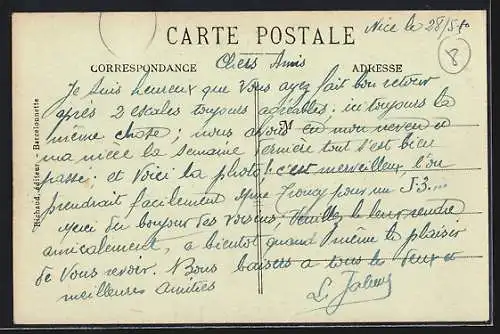 Nice le 28/5/
CARTE POSTALE
8
CORRESPONDANCE
ADRESSE
Chers Amis
Je suis heureux que vous ayez fait bon retour
après 2 escales toujours agréables; ici toujours la
même chose; nous avons eu mon neveu et
ma nièce la semaine dernière tout s'est bien
passé. et Voici la photo! c'est merveilleux, l'on
prendrait facilement Mme pour un
Merci du bonjour des Voisins, Veuillez le leur rendre
amicalement, a bientôt quand même le plaisir
de Vous revoir. Bons baisers a tous les deux et
meilleures Amitiés
Richaud, éditeur, - Barcelonnette